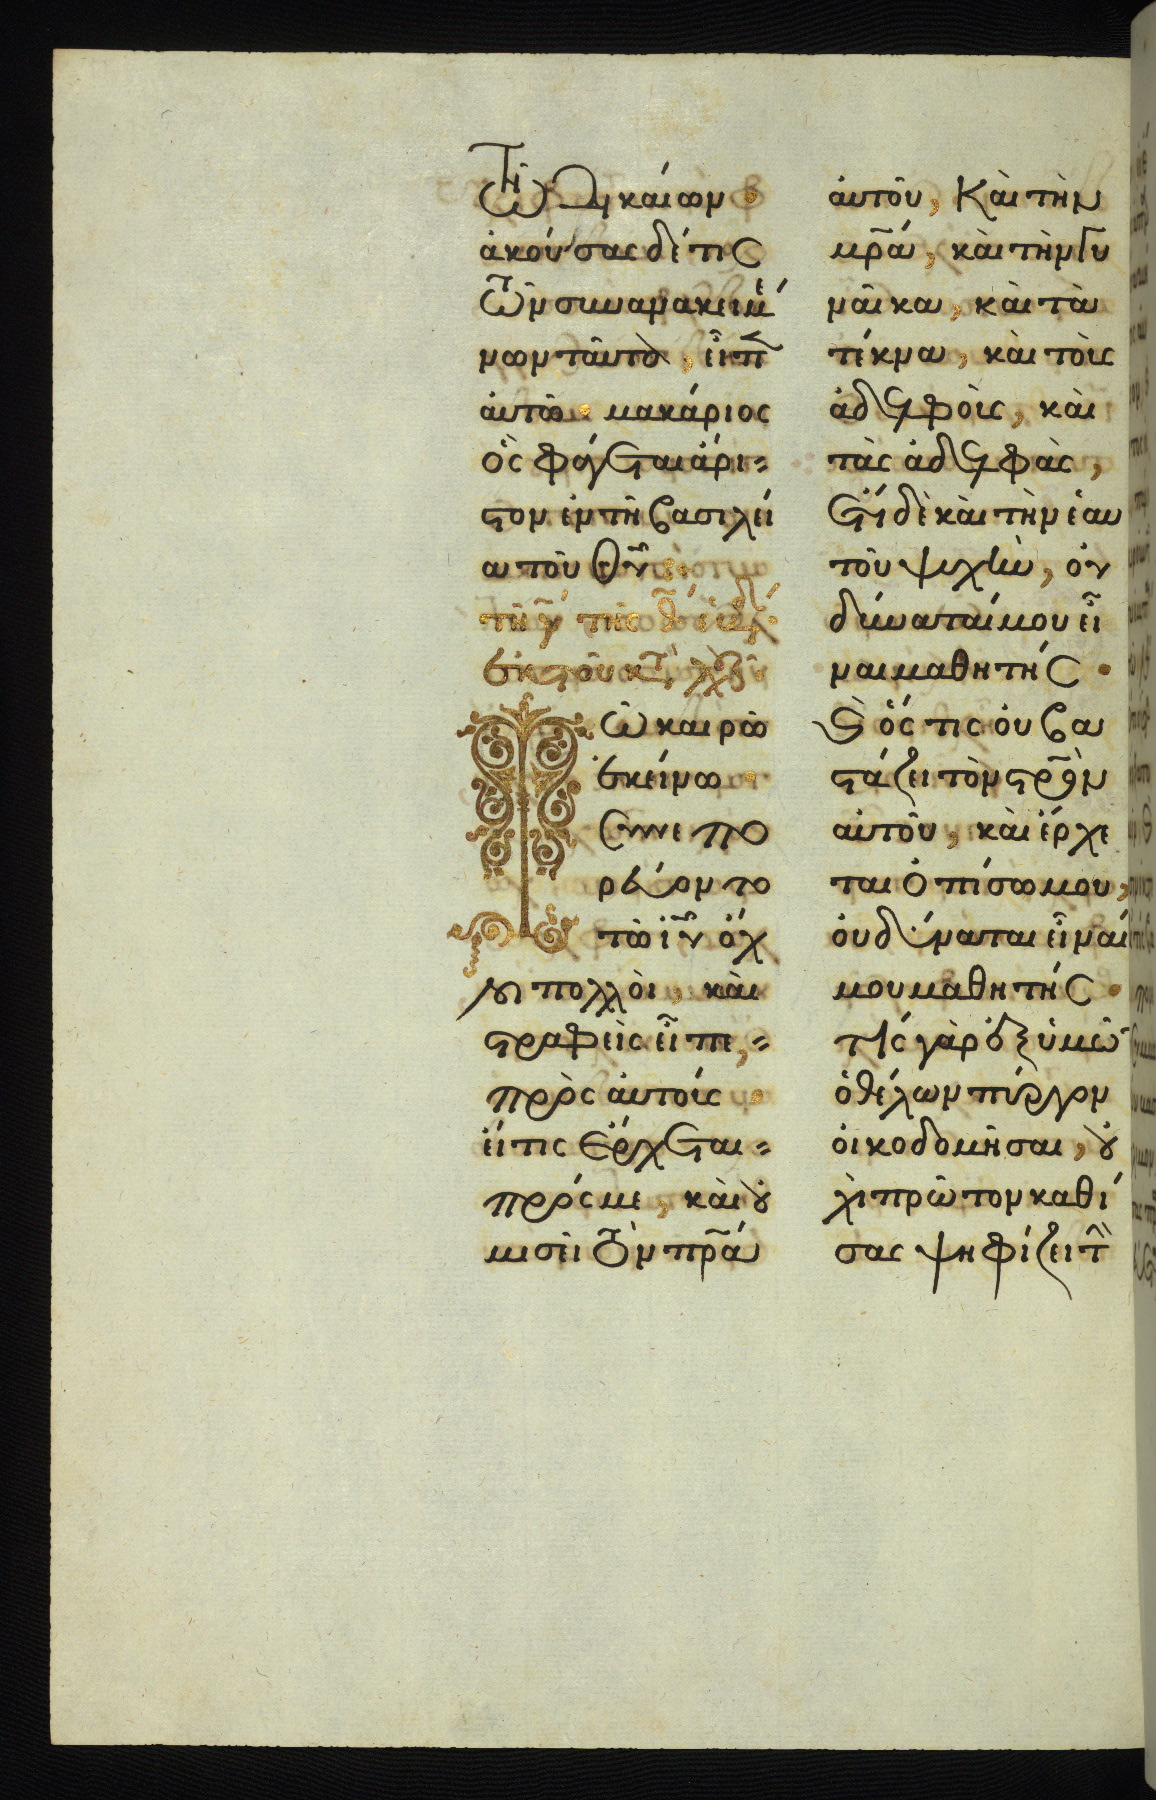 τῶν δικαίων.
ἀκούσας δέ τις
τῶν συνανακειμέ
νων ταῦτα, εἶπεν
αὐτῶ. μακάριος
ὃς φάγεται ἄρι=
στον ἐν τῆ βασιλεί
α τοῦ θυ:
τῆ γ τῆς θ ἑβδ.
ἐκ τοῦ κατὰ λουκ.
Τῶ καιρῶ
ἐκείνω.
συνεπο
ρεύοντο
τῶ ἰυ ὄχ
λοι πολλοὶ, καὶ
στραφεὶς εἶπε,=
πρὸς αὐτούς.
εἴ τις ἔρχεται=
πρός με, καὶ οὐ
μισεῖ τὸν πρα
αὐτοῦ, καὶ τὴν
μρα, καὶ τὴν γυ
ναῖκα, καὶ τὰ
τέκνα, καὶ τοὺς
ἀδελφοὺς, καὶ
τὰς ἀδελφὰς,
ἔτι δὲ καὶ τὴν ἑαυ
τοῦ ψυχὴν, οὐ
δύναταί μου εἶ
ναι μαθητής.
καὶ ὅς τις οὐ βα
στάζει τὸν στρον
αὐτοῦ, καὶ ἔρχε
ται ὀπίσω μου,
οὐ δύναται εἶναί
μου μαθητής.
τίς γὰρ ἐξ ὑμῶν
ὁ θέλων πύργον
οἰκοδομῆσαι, οὐ
χὶ πρῶτον καθί
σας ψηφίζει τὴν